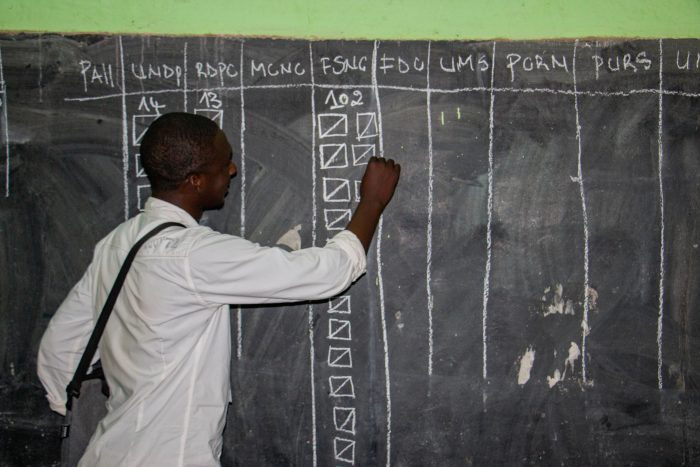 PAII UNDP RDPC MCNC FSNC FDC UMS PCRN PURS U
14 13 102